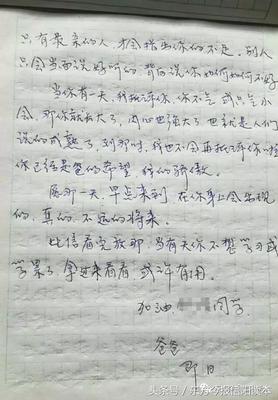 只有最亲的人，才会指出你的不足，别人
只会当面说好听的，背面说你如何如何不好
当你有一天，我批评你，你不气或只气小
会，那你就长大了，内心也强大了，也就是人们
说的成熟了，到那时，我也不会再批评你，
你已经是爸的希望，我的骄傲。
愿那一天，早点来到，在你身上会出现
的，真的，不远的将来。
此信看完放那，当有天你不想学习或
学累了，拿过来看看，或许有用。
加油 同学
爸爸
即日
头条号/东方今报信阳读本